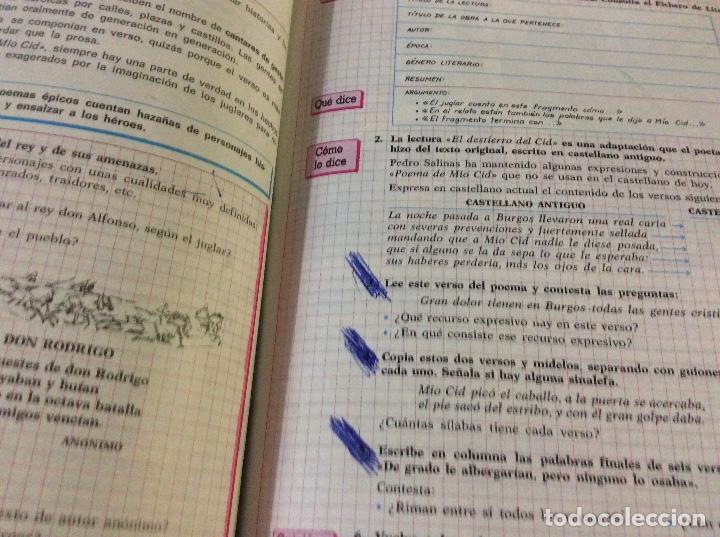 bién el nombre de cantares de gesta
historias y
por calles, plazas y castillos. Las gentes
oralmente de generación en generación.
se componían en verso, quizás porque el verso es más
que la prosa.
Mío Cid», siempre hay una parte de verdad en los hechos
exagerados por la imaginación de los juglares para
poemas épicos cuentan hazañas de personajes
y ensalzar a los héroes.
el rey y de sus amenazas.
personajes con unas cualidades muy definidas:
traidores, etc.
al rey don Alfonso, según el juglar?
el pueblo?
DON RODRIGO
huestes de don Rodrigo
yaban y huían
en la octava batalla
enemigos vencían.
ANÓNIMO
texto de autor anónimo?
TÍTULO DE LA LECTURA:
Consulta el Fichero de
TÍTULO DE LA OBRA A LA QUE PERTENECE:
AUTOR:
ÉPOCA:
GÉNERO LITERARIO:
RESUMEN:
ARGUMENTO:
• «El juglar cuenta en este fragmento cómo...»
• «En el relato están también las palabras que le dijo a Mío Cid...»
• «El fragmento termina con...»
Qué dice
Cómo
lo dice
2. La lectura «El destierro del Cid» es una adaptación que el poeta
hizo del texto original, escrito en castellano antiguo.
Pedro Salinas ha mantenido algunas expresiones y
«Poema de Mío Cid» que no se usan en el castellano de hoy.
Expresa en castellano actual el contenido de los versos
CASTELLANO ANTIGUO
La noche pasada a Burgos llevaron una real carta
con severas prevenciones y fuertemente sellada
mandando que a Mío Cid nadie le diese posada,
que si alguno se la da sepa lo que le esperaba:
sus haberes perdería, más los ojos de la cara.
Lee este verso del poema y contesta las preguntas:
Gran dolor tienen en Burgos todas las gentes
• ¿Qué recurso expresivo hay en este verso?
• ¿En qué consiste ese recurso expresivo?
Copia estos dos versos y mídelos, separando con
cada uno. Señala si hay alguna sinalefa.
Mío Cid picó el caballo, a la puerta se acercaba,
el pie sacó del estribo, y con él gran golpe daba.
¿Cuántas sílabas tiene cada verso?
Escribe en columna las palabras finales de seis
«De grado le albergarían, pero ninguno lo osaba».
Contesta:
• ¿Riman entre sí todos
todocoleccion.net